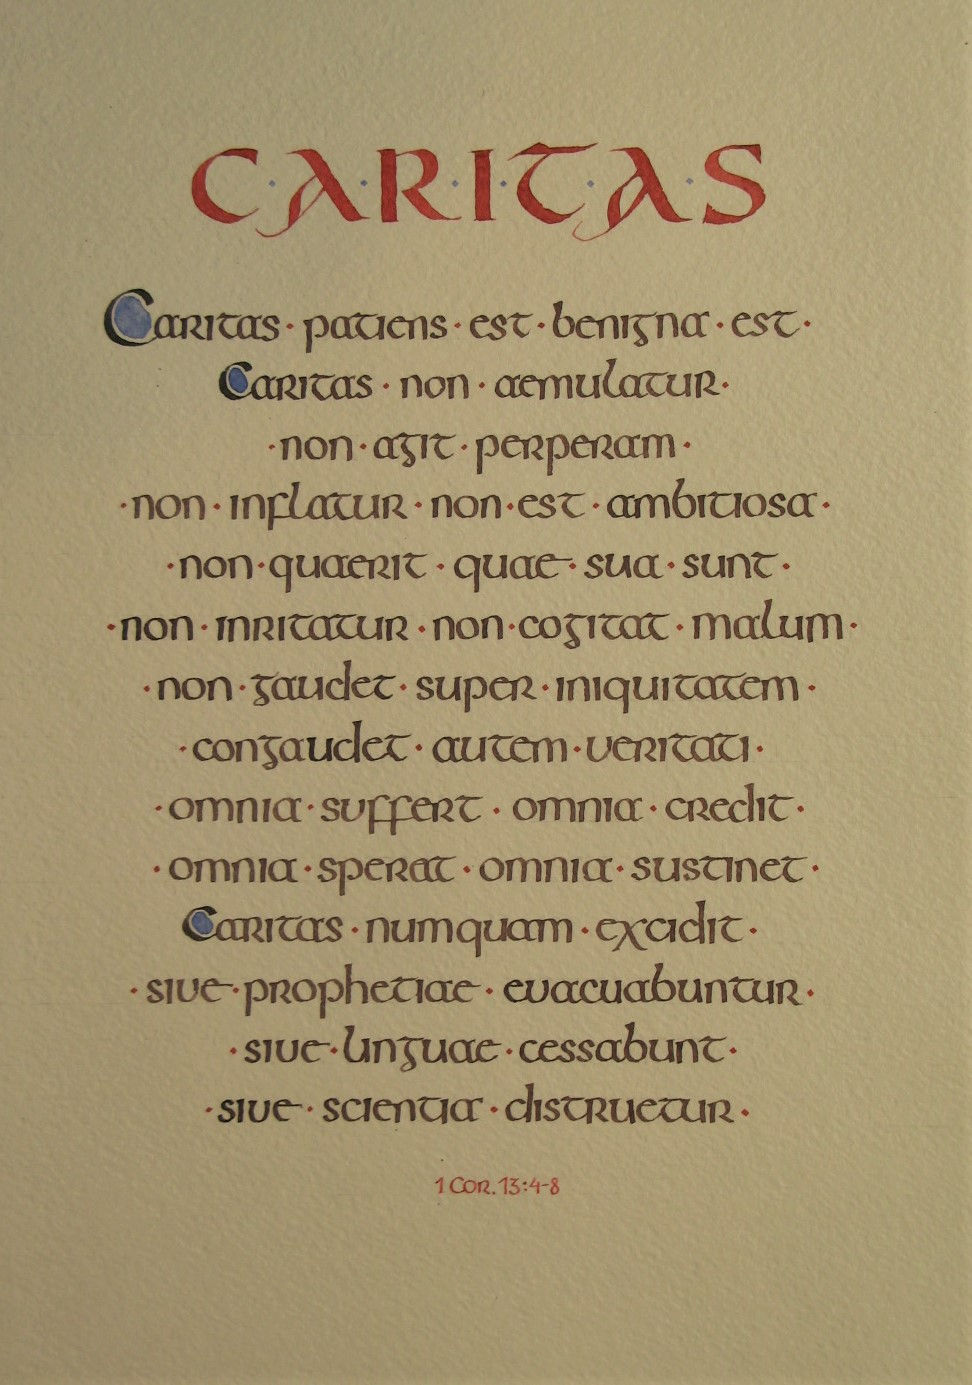 C·A·R·I·T·A·S
Caritas · patiens · est · benigna · est ·
Caritas · non · aemulatur ·
· non · agit · perperam ·
· non · inflatur · non · est · ambitiosa ·
· non · quaerit · quae · sua · sunt ·
· non · inritatur · non · cogitat · malum ·
· non · gaudet · super · iniquitatem ·
· congaudet · autem · veritati ·
· omnia · suffert · omnia · credit ·
· omnia · sperat · omnia · sustinet ·
Caritas · numquam · excidit ·
· sive · prophetiae · evacuabuntur ·
· sive · linguae · cessabunt ·
· sive · scientia · distruetur ·
1 Cor. 13:4-8